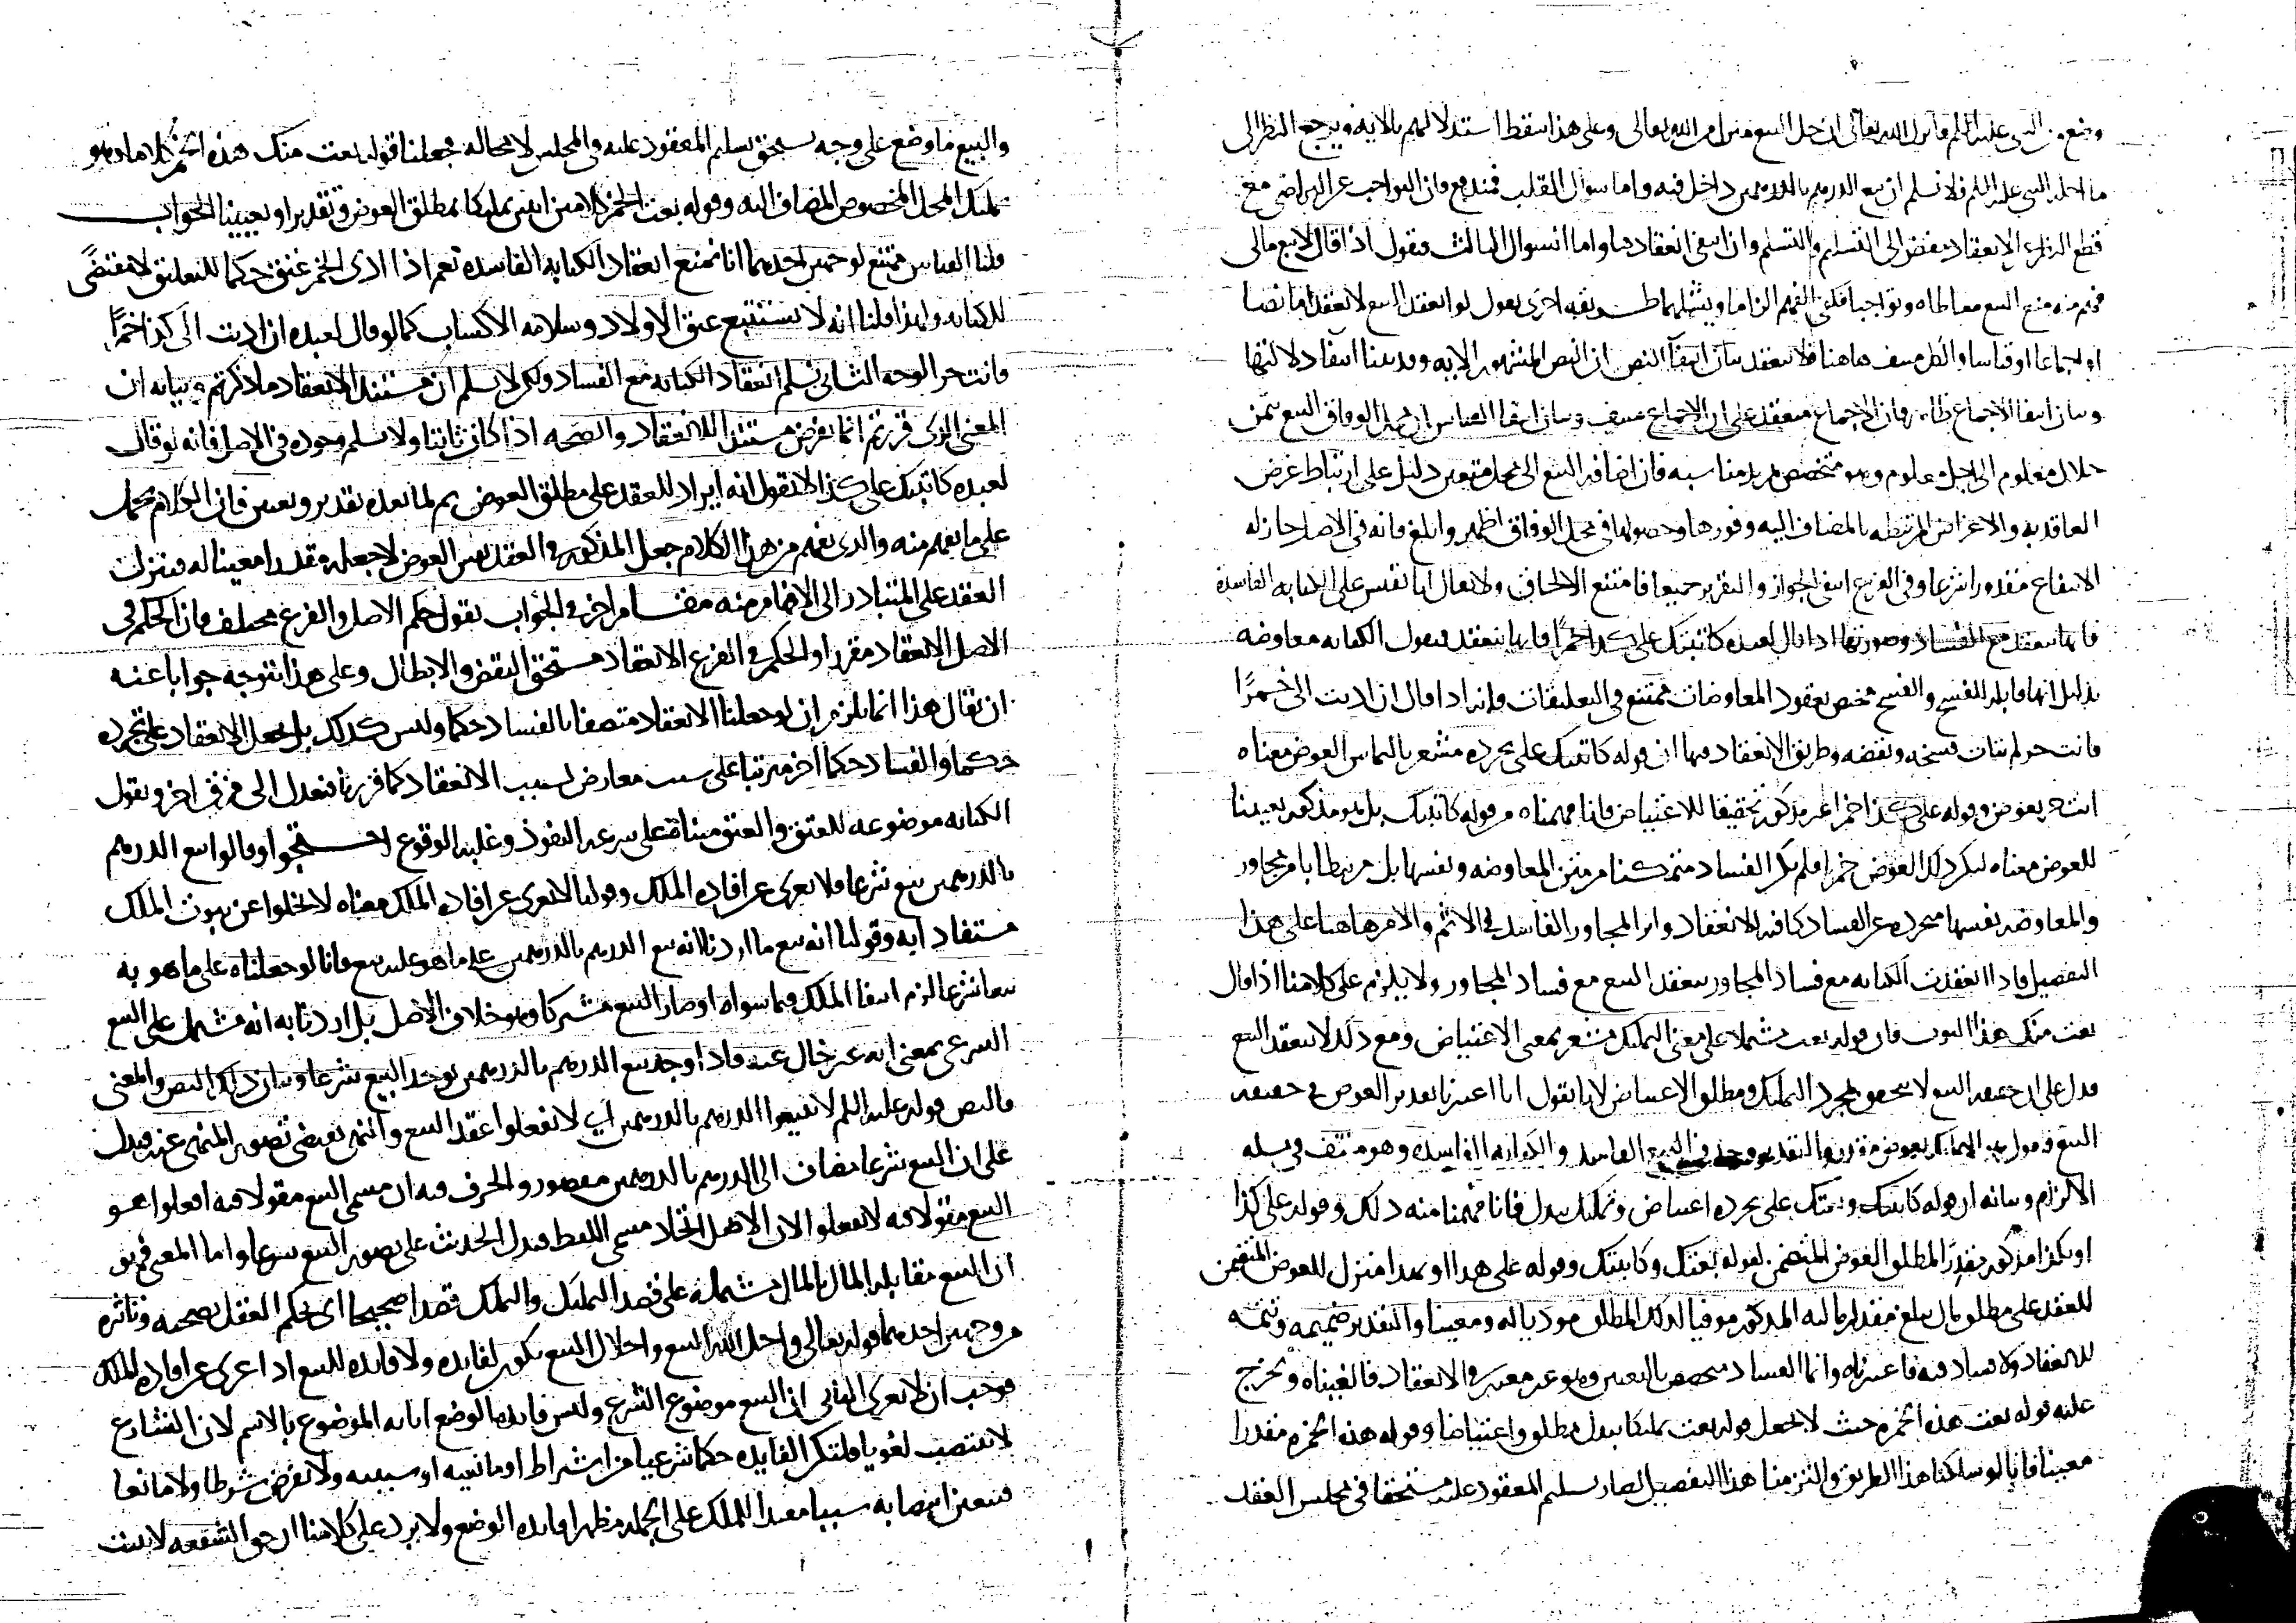 وضع من النبي عليه السلم فانزل الله تعالى ان حل البيع من امر الله تعالى وعلى هذا سقط استدلالهم بالايه ويرجع النظر الى
ما احله النبي عليه السلم فلا نسلم ان بيع الدرهم بالدرهمين داخل فيه واما سوال القلب فمندفع فان التواجب عن التراضي مع
قطع النظر عن الانعقاد مفض الى التسليم والتسلم وان انتفى انعقادها واما السوال الثالث فنقول اذا قال لا تبع مالي
فهم منه منع البيع معاطاه وتواجبا
او اجماعا او قياسا والكل منتف هاهنا فلا ينعقد بيان انتفآ النص ان النص المشهور الايه وقد بينا انتفاد دلالتها
وبيان انتفا الاجماع ظاهر فان الاجماع منعقد على ان الاجماع منتف وبيان انتفا القياس ان محل الوفاق البيع بثمن
حلال معلوم الى اجل معلوم وهو متخصص بمزيد مناسبه فان اضافه البيع الى محل متعين دليل على ارتباط غرض
العاقد به والاغراض المرتبطه بالمضاف اليه وفورها وحصولها في محل الوفاق اظهر وابلغ فانه في الاصل جاز له
الانتفاع مقدورا شرعا وفي الفرع انتفى الجواز والتقرير جميعا فامتنع الالحاق ولا يقال انا نقيس على الكتابه الفاسده
فانها تنعقد مع الفساد وصورتها اذا قال لعبده كاتبتك على كذا خمرًا فانها تنعقد فنقول الكتابه معاوضه
بدليل انها قابله الفسخ والفسخ مختص بعقود المعاوضات ممتنع في التعليقات فانه اذا قال ان اديت الي خمرًا
فانت حر لم يتات فسخه ونقضه وطريق الانعقاد فيها ان قوله كاتبتك على تجرده مشعر بالتماس العوض معناه
انت حر بعوض وقوله على كذا خمرا غير مذكور تحقيقا للاعتياض فانا فهمناه من قوله كاتبتك بل هو مذكور تعيينا
للعوض معناه ليكن ذلك العوض خمرا فلم يكن الفساد متمكنا من متن المعاوضه ونفسها بل مرتبطا بامر مجاور
والمعاوضه نفسها متجرده عن الفساد كافيه للانعقاد واثر المجاور الفاسد في الاثم والامر هاهنا على هذا
التفصيل فاذا انعقدت الكتابه مع فساد المجاور ينعقد البيع مع فساد المجاور ولا يلزم على كلامنا اذا قال
بعت منك هذا الثوب فان قوله بعت مشتملا على معنى التمليك مشعر بمعنى الاعتياض ومع ذلك لا ينعقد البيع
فدل على ان حقيقه البيع لا تتحقق بمجرد التمليك ومطلق الاعتياض لانا نقول انا اعتبرنا تقدير العوض في حقيقه
البيع ونقول هو التمليك بعوض مقدر والتقدير في البيع الفاسد والكتابه الفاسده وهو منتف في مسله
الالزام وبيانه ان قوله كاتبتك وبعتك على تجرده اعتياض وتمليك ببدل فانا فهمنا منه ذلك وقوله على كذا
او بكذا مذكور تقديرًا لمطلق العوض المتضمن لقوله بعتك وكاتبتك وقوله على هذا او بهذا منزل للعوض المتضمن
للعقد على مطلق مال مبلغ مقدار ماليه المذكور موفيا لذلك المطلق موديا له ومعينا والتقدير ضميمه وتتمه
للانعقاد ولا فساد فيه فاعتبرناه وانما الفساد متخصص بالتعيين وهو غير معتبر في الانعقاد فالغيناه وتخرج
عليه قوله بعت هذه الخمره حيث لا نجعل قوله بعت تمليكا ببدل مطلق واعتياضا وقوله هذه الخمره مقدرا
معينا فانا لو سلكنا هذا الطريق والتزمنا هذا التفصيل لصار تسليم المعقود عليه مستحقا في مجلس العقد
والبيع ما وضع على وجه يستحق تسليم المعقود عليه والمجلس لا محاله فجعلنا قوله بعت منك هذه الخمر كلاما واحدا هو
تمليك المحل المخصوص المضاف اليه وقوله بعت الخمر كلامين اثنين تمليكا بمطلق العوض وتقديرا وتعيينا الجواب
قلنا القياس ممتنع لوجهين احدهما انا نمنع انعقاد الكتابه الفاسده نعم اذا ادى الخمر عتق حكما للتعليق لا مقتضًى
للكتابه ولهذا قلنا انه لا يستتبع عتق الاولاد وسلامه الاكساب كما لو قال لعبده ان اديت الي كذا خمرًا
فانت حر الوجه الثاني نسلم انعقاد الكتابه مع الفساد ولكن لا نسلم ان مستند الانعقاد ما ذكرتم وبيانه ان
المعنى الذي قررتم انما يفرض مستندا للانعقاد والصحه اذا كان ثابتا ولا نسلم وجوده في الاصل فانه لو قال
لعبده كاتبتك على كذا لا نقول انه ايراد للعقد على مطلق العوض ثم لما بعده تقدير وتعيين فان الكلام محمول
على ما يفهم منه والذي يفهم من هذا الكلام جعل المذكور في العقد نفس العوض لا جعله مقدرا معينا له فتنزل
العقد على المتبادر الى الافهام منه مقام اخر في الجواب نقول حكم الاصل والفرع مختلف فان الحكم في
الاصل الانعقاد مقررا والحكم في الفرع الانعقاد مستحق النقض والابطال وعلى هذا يتوجه جوابا عنه
ان يقال هذا انما يلزم ان لو جعلنا الانعقاد متصفا بالفساد حكما وليس كذلك بل نجعل الانعقاد على تجرده
حكما والفساد حكما اخر مرتبا على سبب معارض لسبب الانعقاد كما قررنا فنعدل الى فرق اخر ونقول
الكتابه موضوعه للعتق والعتق مبناه على سرعه النفوذ وغلبه الوقوع احتجوا وقالوا بيع الدرهم
بالدرهمين بيع شرعا فلا يعرى عن افاده الملك وقولنا لا يعرى عن افاده الملك معناه لا يخلوا عن ثبوت الملك
مستفادا به وقولنا انه بيع ما اردنا انه بيع الدرهم بالدرهمين على ما هو عليه بيع فانا لو جعلناه على ما هو به
بيعا شرعا لزم انتفا الملك فيما سواه او صار البيع مشتركا وهو خلاف الاصل بل اردنا به انه مشتمل على البيع
الشرعي بمعنى انه غير خال عنه فاذا وجد بيع الدرهم بالدرهمين يوجد البيع شرعا وبيان ذلك النص والمعنى
فالنص قوله عليه السلم لا تبيعوا الدرهم بالدرهمين اي لا تفعلوا عقد البيع والنهي يقتضي تصور المنهي عنه فيدل
على ان البيع شرعا مضاف الى الدرهم بالدرهمين مقصور والحرف فيه ان مسمى البيع مقولا فيه افعلوا هو
البيع مقولا فيه لا تفعلوا لان الاصل اتحاد مسمى اللفظ فيدل الحديث على تصور البيع شرعا واما المعنى فهو
ان البيع مقابله المال بالمال مشتمله على قصد التمليك والتملك قصدا صحيحا اي يحكم العقل بصحته وتاثره
من وجهين احدهما قوله تعالى واحل الله البيع واحلال البيع يكون لفايده ولا فايده للبيع اذا عري عن افاده الملك
فوجب ان لا يعرى الثاني ان البيع موضوع الشرع وليس فايده الوضع ابانه الموضوع بالاسم لان الشارع
لا ينتصب لغويا فلتكن الفايده حكما شرعيا من اشتراط او مانعيه او سببيه ولا نفرض شرطا ولا مانعا
فتعين انتصابه سببا مفيدا للملك على الجمله مظهرا فايده الوضع ولا يرد على كلامنا ان حق الشفعه لا يثبت